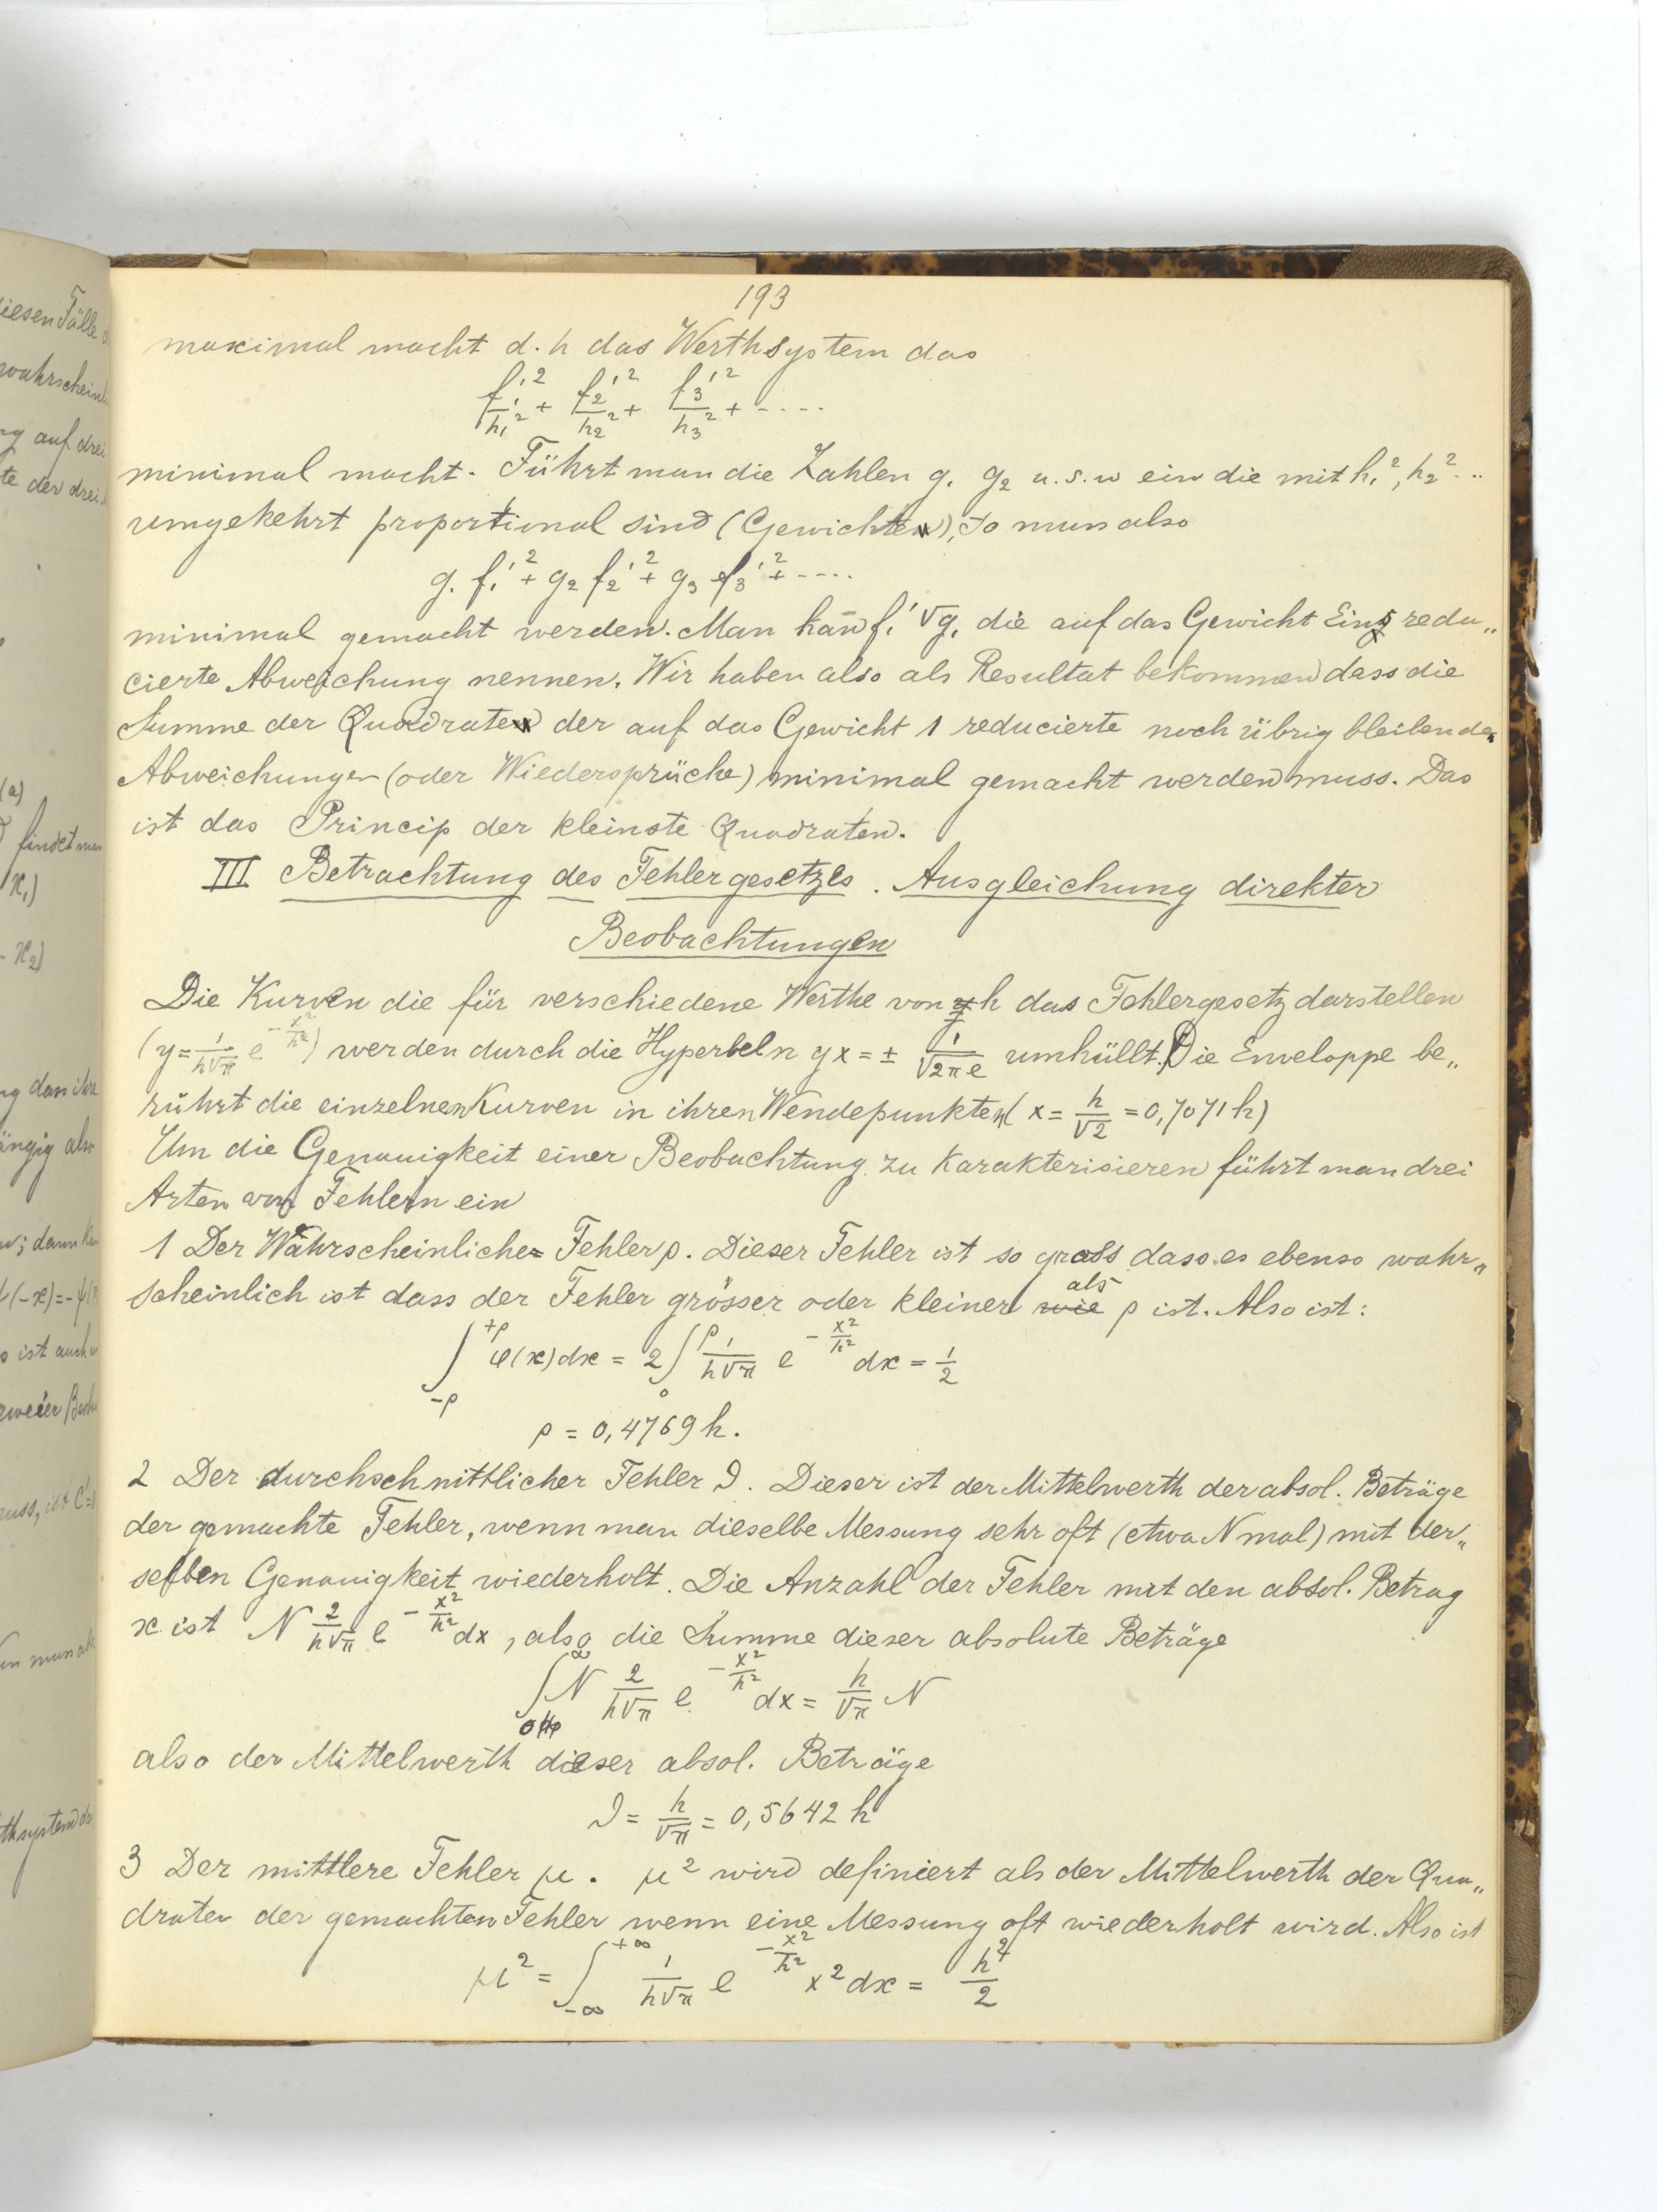 193
maximal macht d. h das Werthsystem das
f₁'²/h₁² + f₂'²/h₂² + f₃'²/h₃² + ....
minimal macht. Führt man die Zahlen g₁ g₂ u. s. w ein die mit h₁², h₂² ..
umgekehrt proportional sind (Gewichte), so muss also
g₁ f₁'² + g₂ f₂'² + g₃ f₃'² + ....
minimal gemacht werden. Man kan̄ f₁' √g₁ die auf das Gewicht Eins redu„
cierte Abweichung nennen. Wir haben also als Resultat bekommen dass die
Summe der Quadrate der auf das Gewicht 1 reducierte noch übrig bleibenden
Abweichungen (oder Wiedersprüche) minimal gemacht werden muss. Das
ist das Princip der kleinste Quadraten.
III Betrachtung des Fehlergesetzes. Ausgleichung direkter
Beobachtungen
Die Kurven die für verschiedene Werthe von h das Fehlergesetz darstellen
(y = 1/(h√π) e^(-x²/h²)) werden durch die Hyperbeln yx = ± 1/√(2πe) umhüllt. Die Enveloppe be„
rührt die einzelnen Kurven in ihren Wendepunkten (x = h/√2 = 0,7071 h)
Um die Genauigkeit einer Beobachtung zu karakterisieren führt man drei
Arten von Fehlern ein
1 Der Wahrscheinliche Fehler ρ. Dieser Fehler ist so gross dass es ebenso wahr„
scheinlich ist dass der Fehler grösser oder kleiner wie als ρ ist. Also ist:
∫₋ρ^+ρ φ(x) dx = 2 ∫₀^ρ 1/(h√π) e^(-x²/h²) dx = 1/2
ρ = 0,4769 h.
2 Der durchschnittlicher Fehler ϑ. Dieser ist der Mittelwerth der absol. Beträge
der gemachte Fehler, wenn man dieselbe Messung sehr oft (etwa N mal) mit der„
selben Genauigkeit wiederholt. Die Anzahl der Fehler mit den absol. Betrag
x ist N 2/(h√π) e^(-x²/h²) dx, also die Summe dieser absolute Beträge
∫₀^∞ N 2/(h√π) e^(-x²/h²) dx = h/√π N
also der Mittelwerth dieser absol. Beträge
ϑ = h/√π = 0,5642 h
3 Der mittlere Fehler μ. μ² wird definiert als der Mittelwerth der Qua„
draten der gemachten Fehler wenn eine Messung oft wiederholt wird. Also ist
μ² = ∫₋∞^+∞ 1/(h√π) e^(-x²/h²) x² dx = h²/2